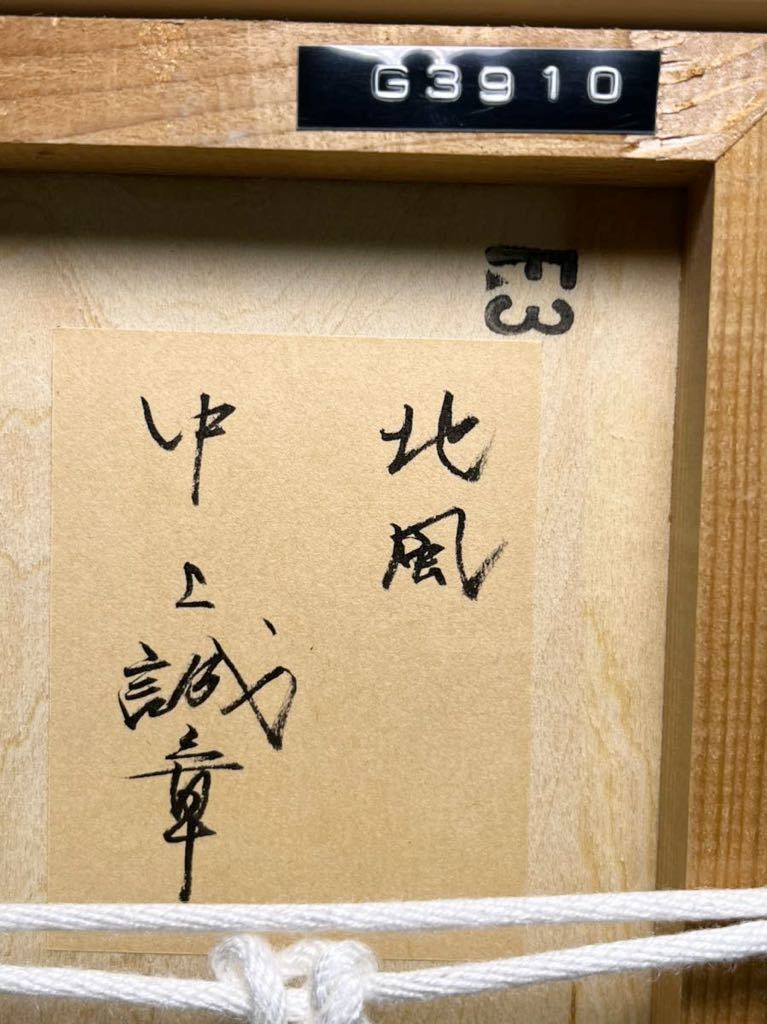 G3910
F3
北風
中上誠章